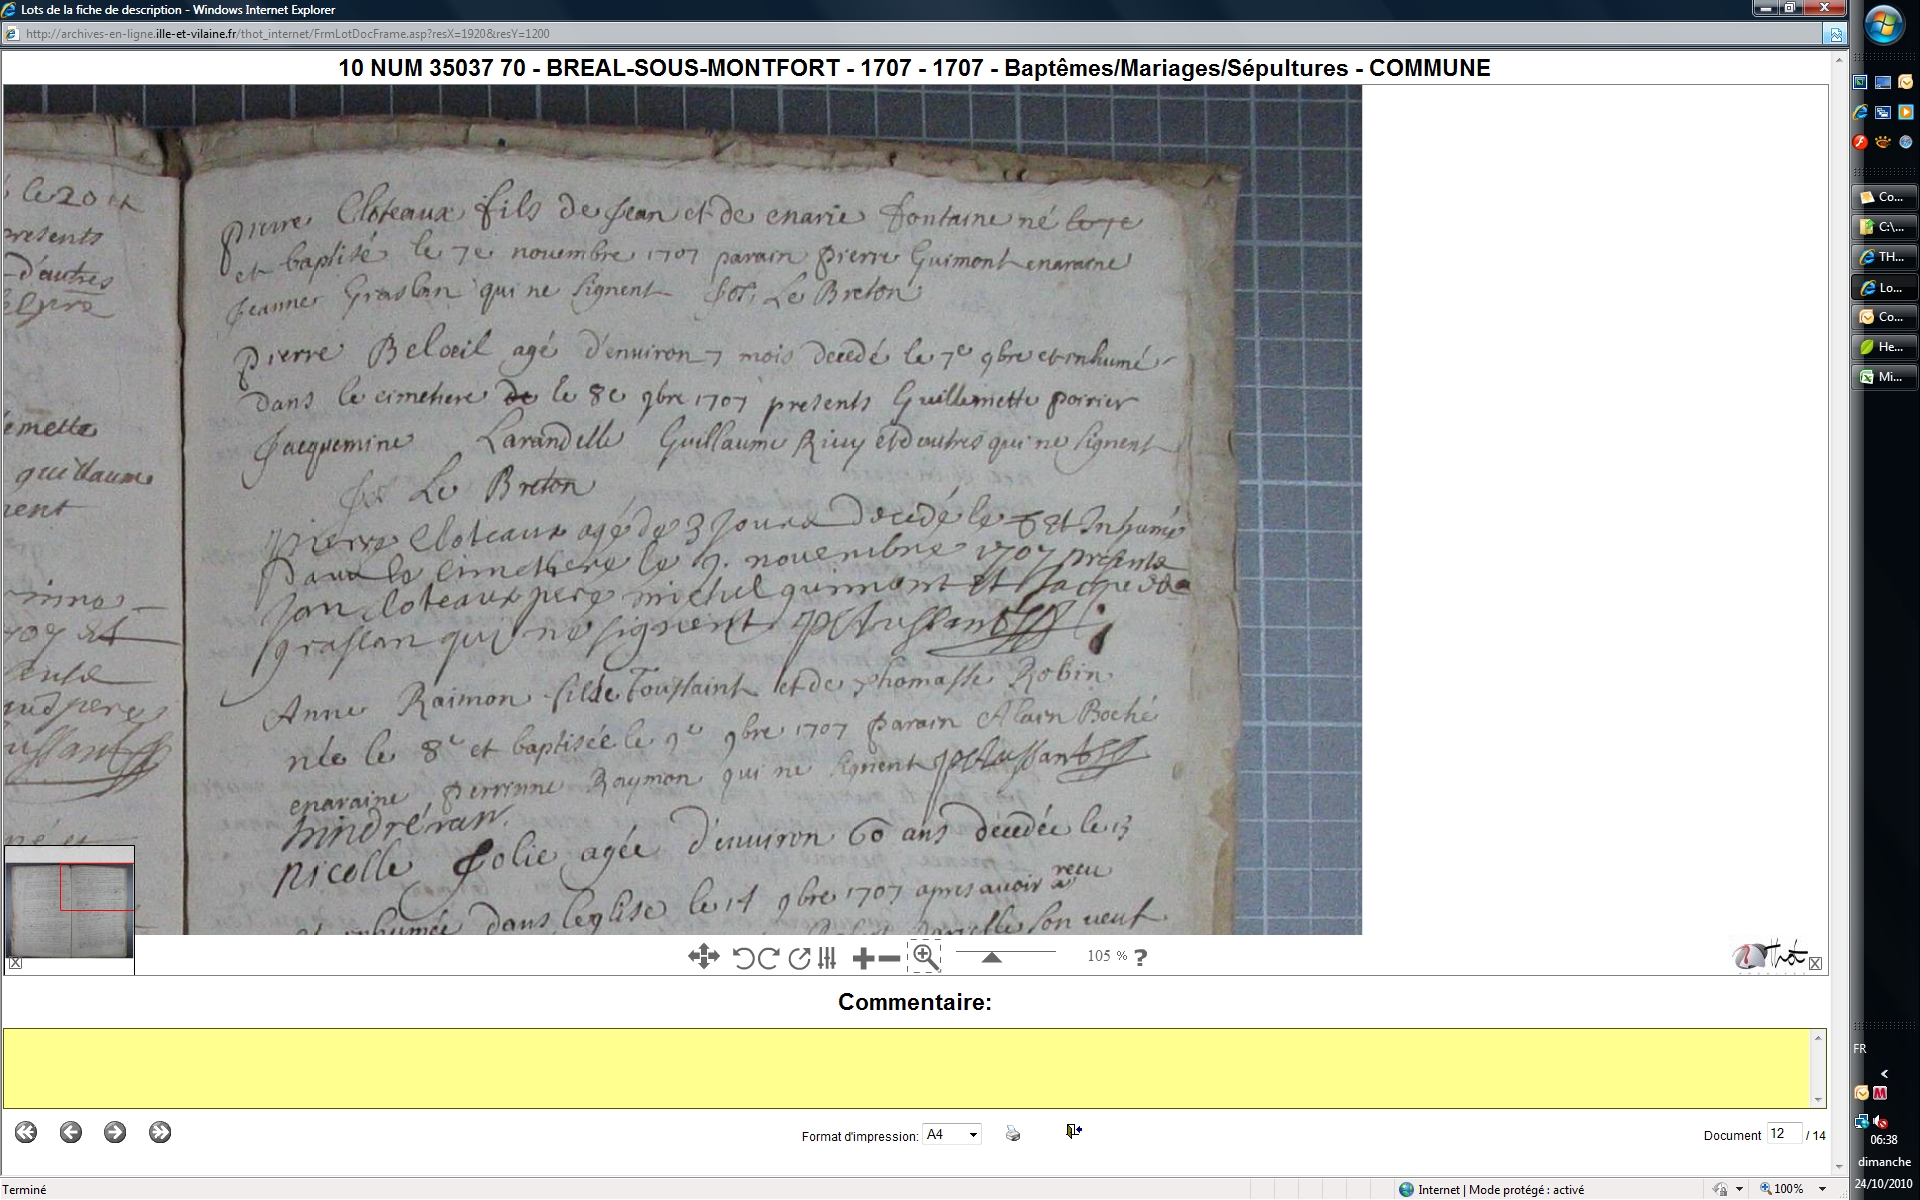 Lots de la fiche de description - Windows Internet Explorer
http://archives-en-ligne.ille-et-vilaine.fr/thot_internet/FrmLotDocFrame.asp?resX=1920&resY=1200
10 NUM 35037 70 - BREAL-SOUS-MONTFORT - 1707 - 1707 - Baptêmes/Mariages/Sépultures - COMMUNE
le 20
presents
d'autres
emette
guillaume
nent
né et
pierre Cloteaux fils de Jean et de marie fontaine né
et baptisé le 7e novembre 1707 parain pierre Guimont maraine
Jeanne Graslan qui ne signent Le Breton
pierre Beloeil agé d'environ 7 mois decedé le 7e 9bre et inhumé
dans le cimetiere de le 8e 9bre 1707 presents Guillemette poirier
Jacquemine Larandelle Guillaume Riuy et d'autres qui ne signent
Le Breton
pierre Cloteaux agé de 3 Jours decedé le et Inhumé
dans le cimetiere le 9. novembre 1707 presents
Jan cloteaux pere michel guimont et
graslan qui ne signent
Anne Raimon fille de Toussaint et de thomasse Robin
née le 8e et baptisée le 9e 9bre 1707 parain Alain Boché
maraine perrinne Raymon qui ne signent
hindréran.
Nicolle Jolie agée d'environ 60 ans décedée le 13
et inhumée dans leglise le 14 9bre 1707 apres avoir recu
son veuf
105 % ?
Thot
Commentaire:
Format d'impression: A4
Document 12 / 14
Terminé
Internet | Mode protégé : activé
100%
Co...
C:\...
TH...
Lo...
Co...
He...
Mi...
FR
06:38
dimanche
24/10/2010